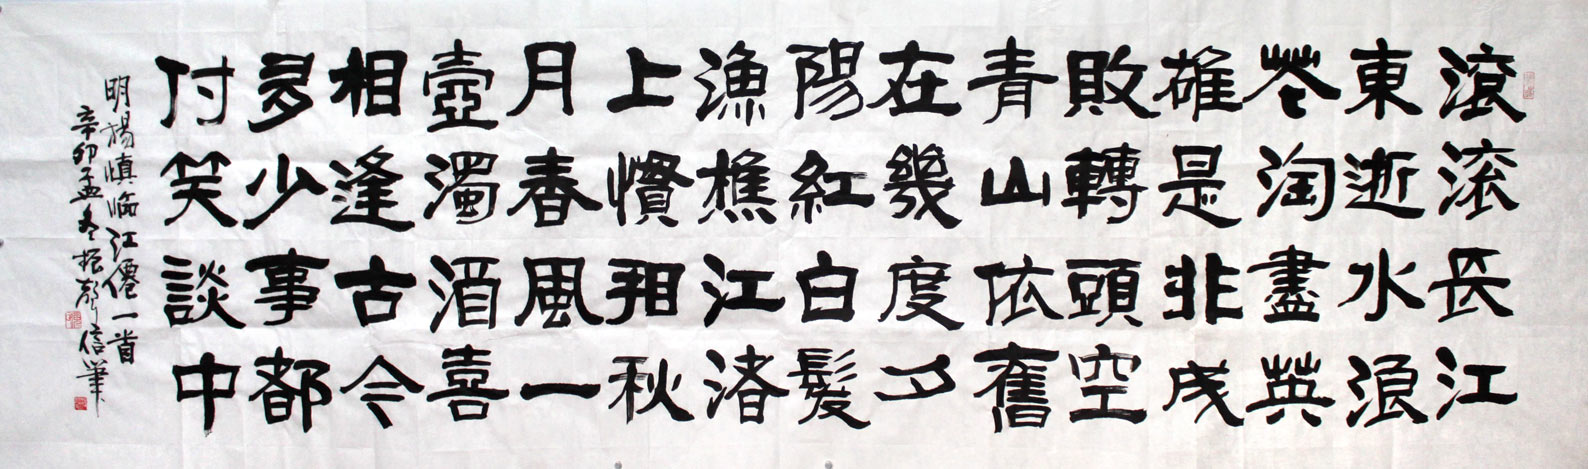 滾滚長江
東逝水浪
花淘盡英
雄是非成
敗轉頭空
青山依舊
在幾度夕
陽紅白髮
漁樵江渚
上慣看秋
月春風一
壺濁酒喜
相逢古今
多少事都
付笑談中
明楊慎临江僊一首
辛卯孟冬振聲信筆